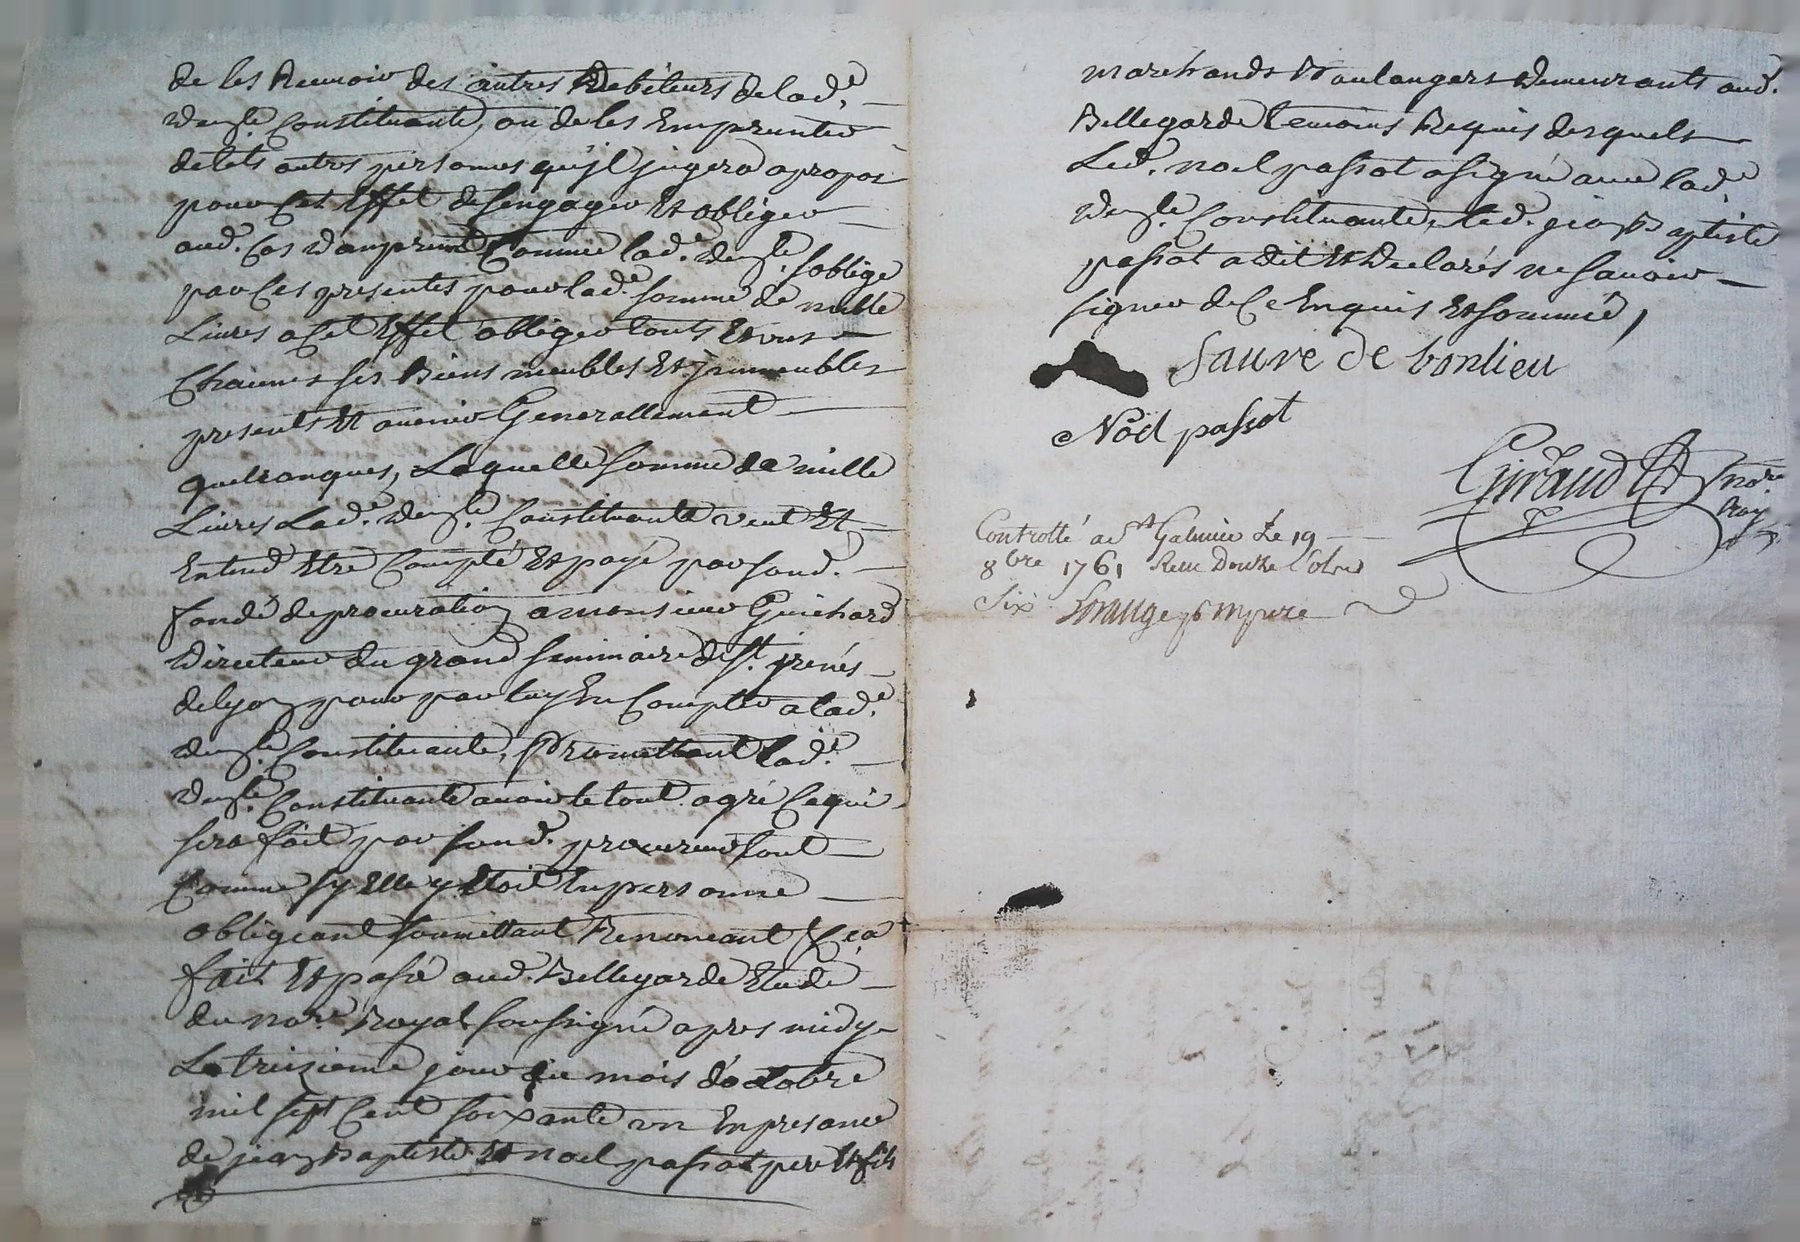 de les Recuoir des autres Debiteurs de lad.e
dem.lle Constituante, ou de les Emprunter
de tels autres personnes qu'jl jugera apropos
pour Cet Effet de sengager Et obliger
aud. Cas d'amprunt Comme lad.e dem.lle soblige
par Ces presentes pour lad.e somme de mille
Livres a Cet Effet obliger touts Et uns
Chaicuns ses Biens meubles Et jmmeubles
presents Et auenir Generallement
quelconques, Laquelle somme de mille
Livres Lad.e dem.lle Constituante veut Et
Entend Etre Compté Et payé par sond.
fondé de procuration a monsieur Guichard
Directeur du grand seminaire de St. jrenés
de lyon pour par luy En Compter a lad.e
dem.lle Constituante, Promettant Lad.e
dem.lle Constituante auoir le tout agré Ce qui
sera fait par sond. procureur tout
Comme sy Elle y Etoit En personne
obligeant soumettant Renonceant &ca
fait Et passé aud. Bellegarde Etude
du no.re Royal soussigné apres midy
Le treizieme jour du mois d'octobre
mil sept Cent soixante un En presance
de jean Baptiste Et noel passot pere Et fils
marchands Boulangers demeurants aud.
Bellegarde temoins Requis desquels
Led. noel passot a signé auec lad.e
dem.lle Constituante, led. jean Baptiste
passot a dit Et Declarés ne sauoir
signer de Ce Enquis Et sommé,
sauve de bonlieu
Nöel passot
Giraud no.re Roy.
Controllé a St Galmier Le 19
8bre 1761 Recu Douze sols
six